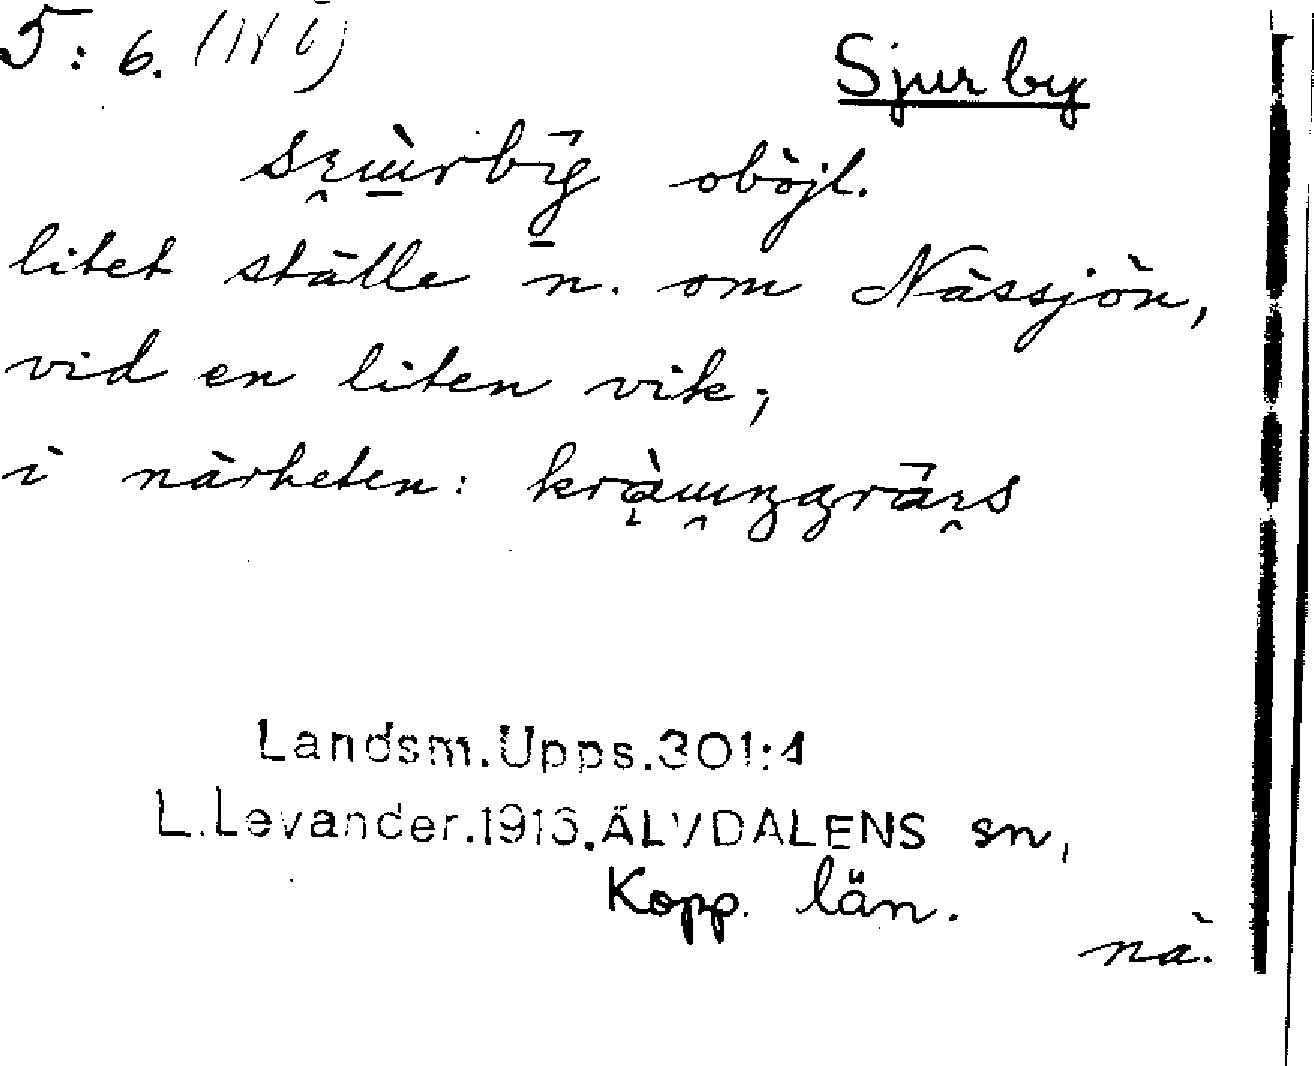 5:6. (N I)
Sjurby
oböjl.
litet ställe n. om Nässjön,
vid en liten vik;
i närheten:
Landsm.Upps.301:1
L.Levander.1916.ÄLVDALENS sn,
Kopp. län.
nä.